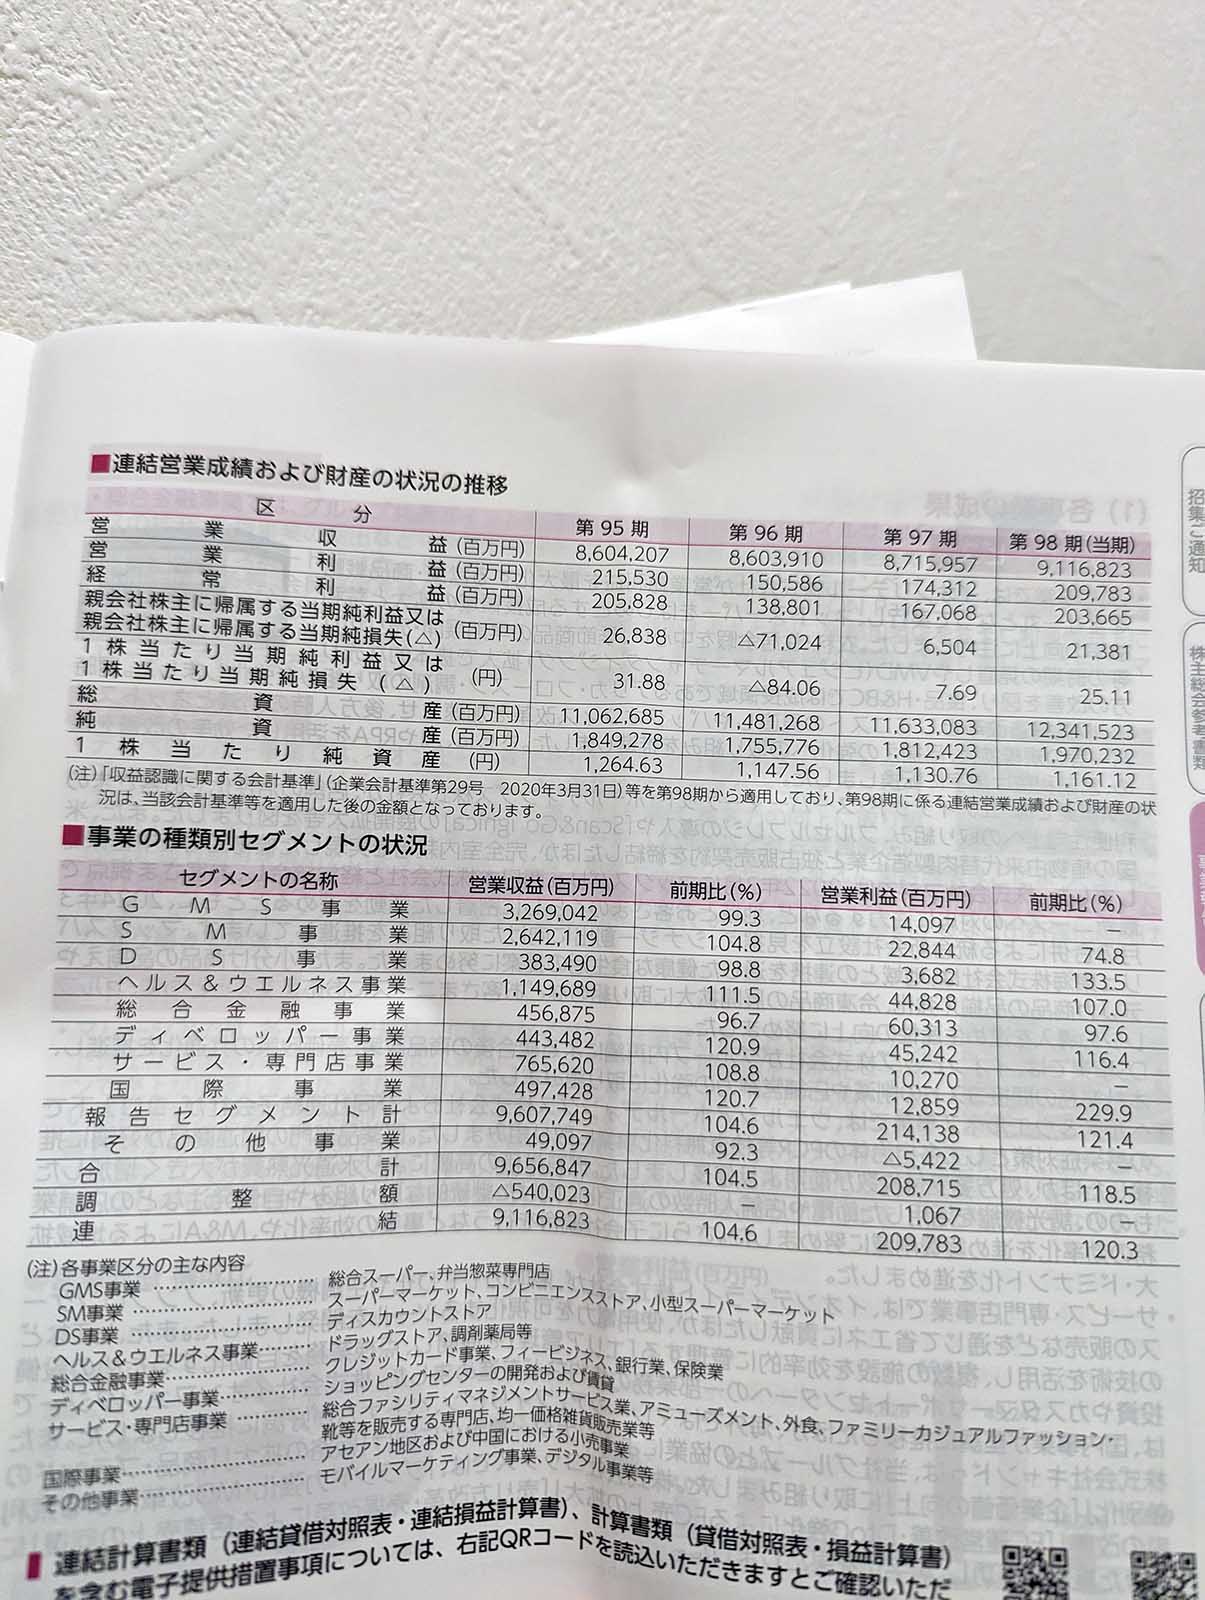 ■連結営業成績および財産の状況の推移
区分 第 95 期 第 96 期 第 97 期 第 98 期(当期)
営業収益(百万円) 8,604,207 8,603,910 8,715,957 9,116,823
営業利益(百万円) 215,530 150,586 174,312 209,783
経常利益(百万円) 205,828 138,801 167,068 203,665
親会社株主に帰属する当期純利益又は
親会社株主に帰属する当期純損失(△)(百万円) 26,838 △71,024 6,504 21,381
1株当たり当期純利益又は
1株当たり当期純損失(△)(円) 31.88 △84.06 7.69 25.11
総資産(百万円) 11,062,685 11,481,268 11,633,083 12,341,523
純資産(百万円) 1,849,278 1,755,776 1,812,423 1,970,232
1株当たり純資産(円) 1,264.63 1,147.56 1,130.76 1,161.12
(注)「収益認識に関する会計基準」(企業会計基準第29号 2020年3月31日)等を第98期から適用しており、第98期に係る連結営業成績および財産の状
況は、当該会計基準等を適用した後の金額となっております。
■事業の種類別セグメントの状況
セグメントの名称 営業収益(百万円) 前期比(%) 営業利益(百万円) 前期比(%)
GMS事業 3,269,042 99.3 14,097 −
SM事業 2,642,119 104.8 22,844 74.8
DS事業 383,490 98.8 3,682 133.5
ヘルス&ウエルネス事業 1,149,689 111.5 44,828 107.0
総合金融事業 456,875 96.7 60,313 97.6
ディベロッパー事業 443,482 120.9 45,242 116.4
サービス・専門店事業 765,620 108.8 10,270 −
国際事業 497,428 120.7 12,859 229.9
報告セグメント計 9,607,749 104.6 214,138 121.4
その他事業 49,097 92.3 △5,422 −
合計 9,656,847 104.5 208,715 118.5
調整額 △540,023 − 1,067 −
連結 9,116,823 104.6 209,783 120.3
(注)各事業区分の主な内容
GMS事業 総合スーパー、弁当惣菜専門店
SM事業 スーパーマーケット、コンビニエンスストア、小型スーパーマーケット
DS事業 ディスカウントストア
ヘルス&ウエルネス事業 ドラッグストア、調剤薬局等
総合金融事業 クレジットカード事業、フィービジネス、銀行業、保険業
ディベロッパー事業 ショッピングセンターの開発および賃貸
サービス・専門店事業 総合ファシリティマネジメントサービス業、アミューズメント、外食、ファミリーカジュアルファッション・
靴等を販売する専門店、均一価格雑貨販売業等
国際事業 アセアン地区および中国における小売事業
その他事業 モバイルマーケティング事業、デジタル事業等
連結計算書類(連結貸借対照表・連結損益計算書)、計算書類(貸借対照表・損益計算書)
を含む電子提供措置事項については、右記QRコードを読込いただきますとご確認いただ
招集ご通知
株主総会参考書類